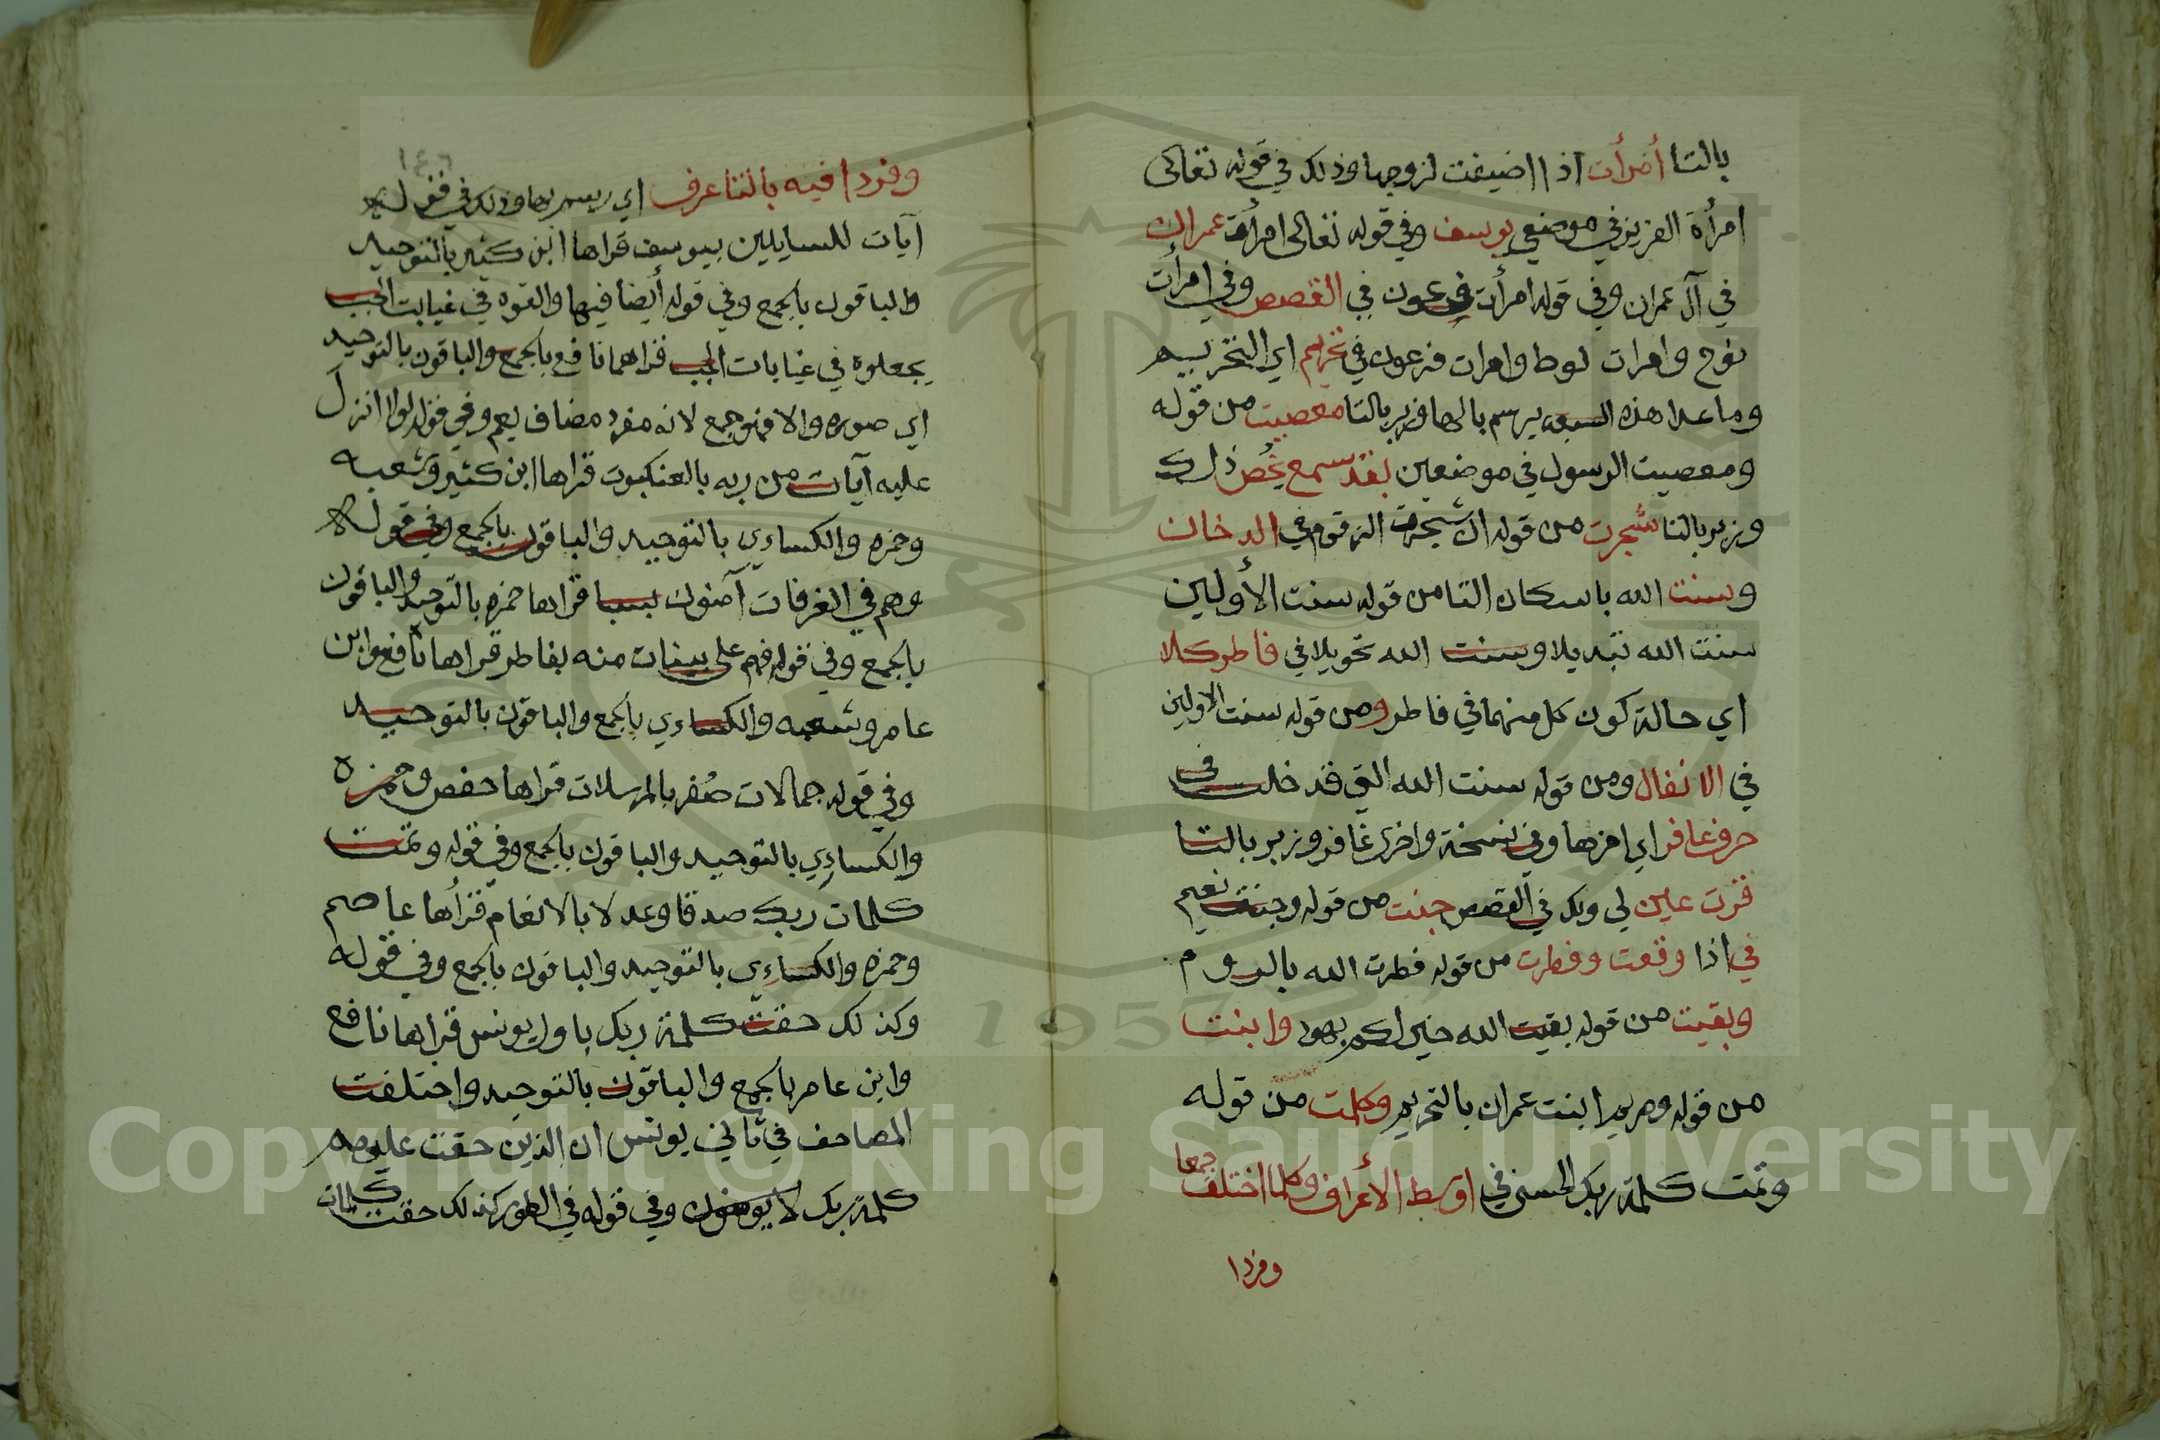 بالتا أمرأت اذا اضيفت لزوجها وذلك في قوله تعالى
امرأة العزيز في موضعي يوسف وفي قوله تعالى امرأة عمران
في آل عمران وفي قوله امرأت فرعون في القصص وفي امرأت
نوح وامرات لوط وامرات فرعون في تحريم اي التحريم
وما عدا هذه السبعه يرسم بالها وزبر بالتا معصيت من قوله
ومعصيت الرسول في موضعين بقد سمع يخص ذلك
وزبر بالتا شجرت من قوله ان شجرت الزقوم في الدخان
وسنت الله باسكان التا من قوله سنت الأولين
سنت الله تبديلا وسنت الله تحويلا في فاطر كلا
اي حالة كون كل منهما في فاطر ومن قوله سنت الاولين
في الانفال ومن قوله سنت الله التي قد خلت في
حرف غافر اي اخرها وفي نسخة واخرى غافر وزبر بالتا
قرت عين لي ولك في القصص جنت من قوله وجنت نعيم
في اذا وقعت وفطرت من قوله فطرت الله بالروم
وبقيت من قوله بقيت الله خير لكم بهود وابنت
من قوله ومريم ابنت عمران بالتحريم وكلمت من قوله
وتمت كلمة ربك الحسنى في اوسط الأعراف وكلما اختلف جمعا
وفردا
١٤٦
وفردا فيه بالتا عرف اي رسم بها وذلك في قوله
آيات للسايلين بيوسف قراها ابن كثير بالتوحيد
والباقون بالجمع وفي قوله أيضا فيها والقوه في غيابت الجب
يجعلوه في غيابات الجب قراهما نافع بالجمع والباقون بالتوحيد
اي صوره والا فهو جمع لانه مفرد مضاف يعم وفي قوله لولا انزل
عليه آيات من ربه بالعنكبوت قراها ابن كثير وشعبه
وحمزه والكساءي بالتوحيد والباقون بالجمع وفي قوله
وهم في الغرفات آمنون بسبا قراها حمزه بالتوحيد والباقون
بالجمع وفي قوله فهم على بينات منه بفاطر قراها نافع وابن
عامر وشعبه والكساءي بالجمع والباقون بالتوحيد
وفي قوله جمالات صفر بالمرسلات قراها حفص وحمزه
والكساءي بالتوحيد والباقون بالجمع وفي قوله وتمت
كلمات ربك صدقا وعدلا بالانعام قرأها عاصم
وحمزه والكساءي بالتوحيد والباقون بالجمع وفي قوله
وكذلك حقت كلمة ربك باول يونس قراها نافع
وابن عامر بالجمع والباقون بالتوحيد واختلفت
المصاحف في ثاني يونس ان الذين حقت عليهم
كلمة ربك لا يومنون وفي قوله في الطور كذلك حقت كلمات